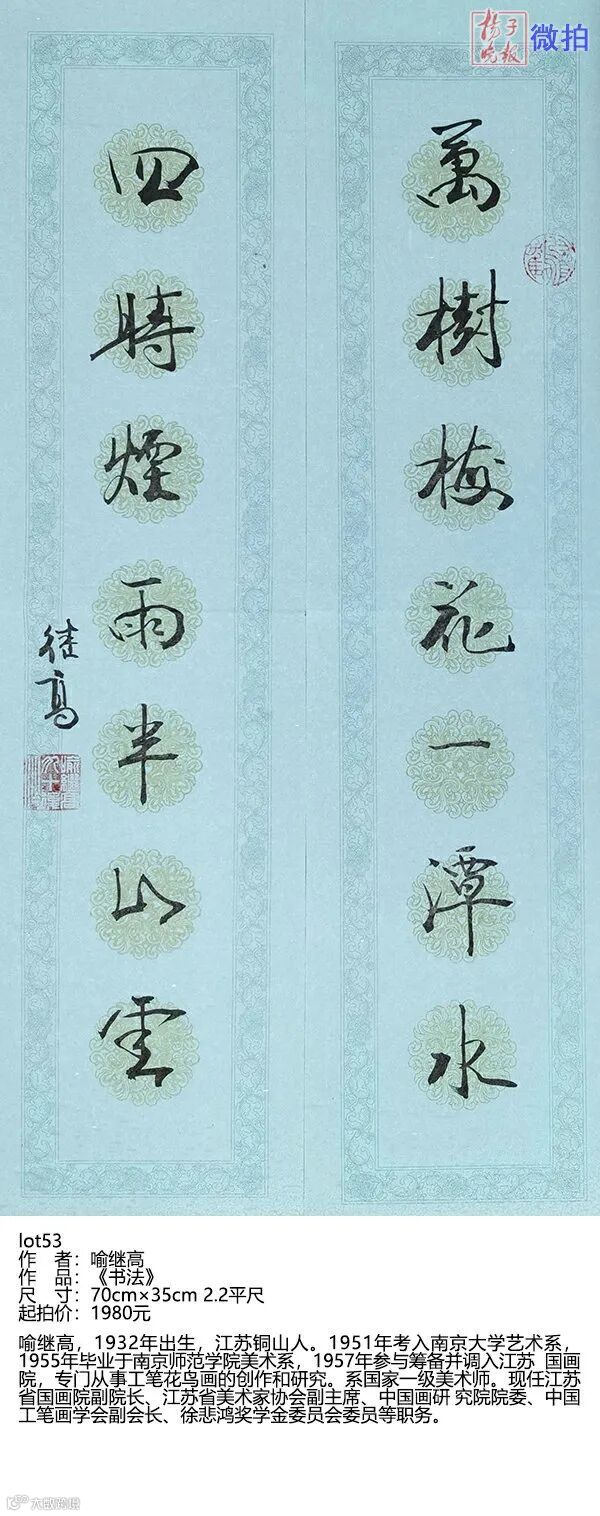 扬子晚报 微拍
萬樹梅花一潭水
四時煙雨半山雲
继高
lot53
作 者：喻继高
作 品：《书法》
尺 寸：70cm×35cm 2.2平尺
起拍价：1980元
喻继高，1932年出生，江苏铜山人。1951年考入南京大学艺术系，
1955年毕业于南京师范学院美术系，1957年参与筹备并调入江苏 国画
院，专门从事工笔花鸟画的创作和研究。系国家一级美术师。现任江苏
省国画院副院长、江苏省美术家协会副主席、中国画研 究院院委、中国
工笔画学会副会长、徐悲鸿奖学金委员会委员等职务。
大数跨境